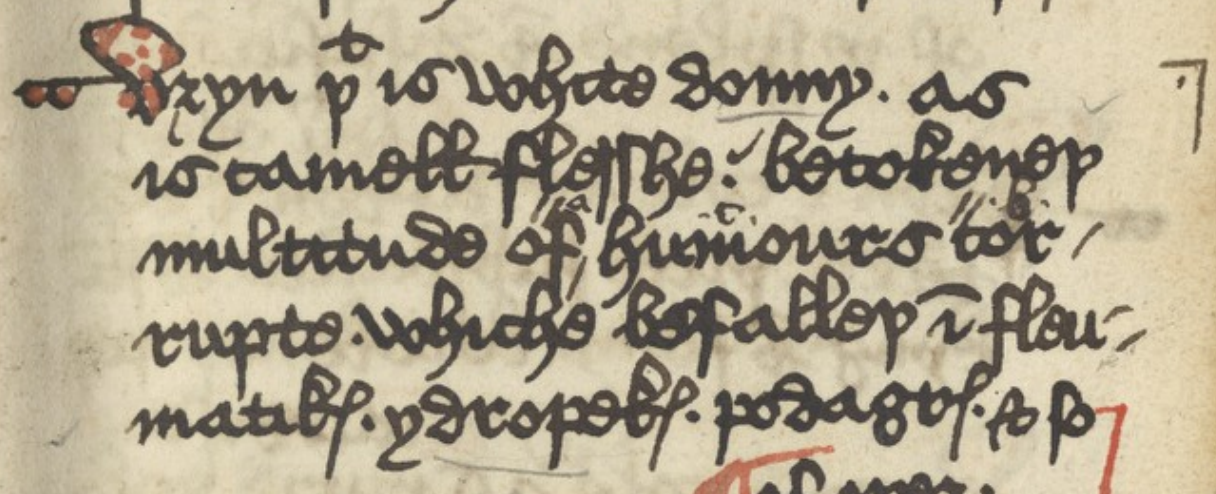 Vryn þͭ is white donny. as
is camell flesshe: betokeneþ
multitude of humours cor-
rupte. whiche befalleþ ī fleu-
matikꝭ. ydropekꝭ. podagrꝭ. & so